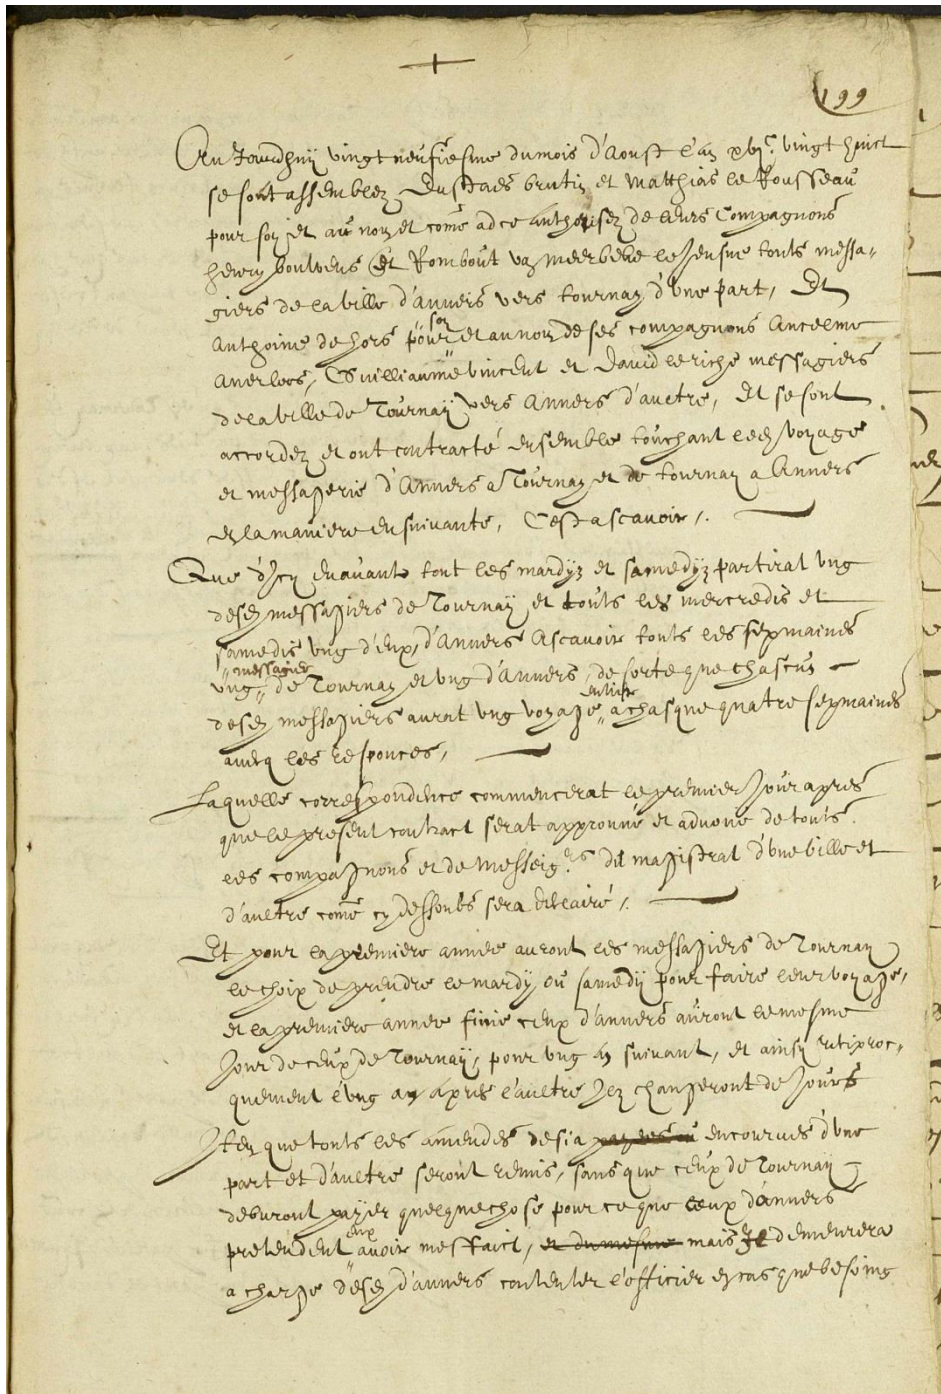 +
199
Au Jourdhuÿ vingt neufiesme du mois d'Aoust l'an xvjc. vingt huict
se sont assemblez Eustaes brutin et Matthias le Rousseau
pour soy et au nom et come ad ce authorisez de leurs Compagnons
henry bouwens et Rombout van Meerbeke le Jeusne touts messa-
giers de la ville d'anvers vers tournay d'une part, Et
Anthoine de hors pour soy et au nom de ses compagnons Ancelme
Guilliaume vincent et david le riche messagiers
de la ville de Tournaÿ vers Anvers d'aultre, Et se sont
accordez et ont contracté ensemble touchant le voyage
et messagerie d'Anvers a Tournay et de tournay a Anvers
en la maniere ensuivante, C'est ascavoir,.
Que d'Icy en avant tout les mardijs et samedijs partirat ung
des messagiers de Tournaÿ et touts les mercredis et
samedis ung d'eux, d'Anvers Ascavoir touts les sepmaines
ung messagier de Tournay et ung d'Anvers, de sorte que chascun
des messagiers aurat ung voyage entier a chasque quatre sepmaines
avecq les responces,
Laquelle correspondence commencerat le premier Jour apres
que le present contract serat approuvé et advoué de touts
les compagnons et de Messeigrs. du magistrat d'une ville et
d'aultre come cy dessoubs sera declairé,.
Et pour la premiere année auront les messagiers de Tournay
le choix de prendre le mardÿ ou samedÿ pour faire leur voyage,
et la premiere année finie ceux d'anvers auront le mesme
Jour de ceux de Tournaÿ, pour ung an suivant, et ainsy reciproc-
quement l'ung an apres l'aultre Ilz changeront de Jours
Item que touts les amendes desia encourues d'une
part et d'aultre seront remis, sans que ceux de Tournaÿ
debvront payer quelque chose pour ce que ceux d'anvers
pretendent eux avoir mesfaict, et du mesme mais Il demeurera
a charge d'anvers contenter l'officier en cas que besoing